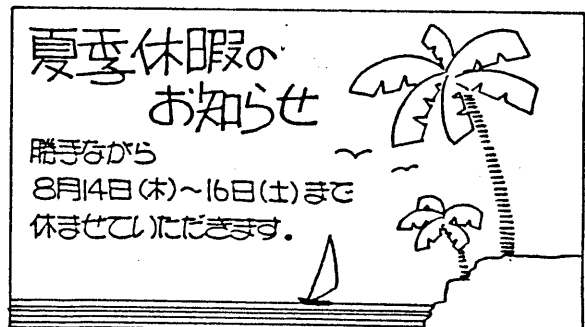 夏季休暇の
お知らせ
勝手ながら
8月14日(木)～16日(土)まで
休ませていただきます.